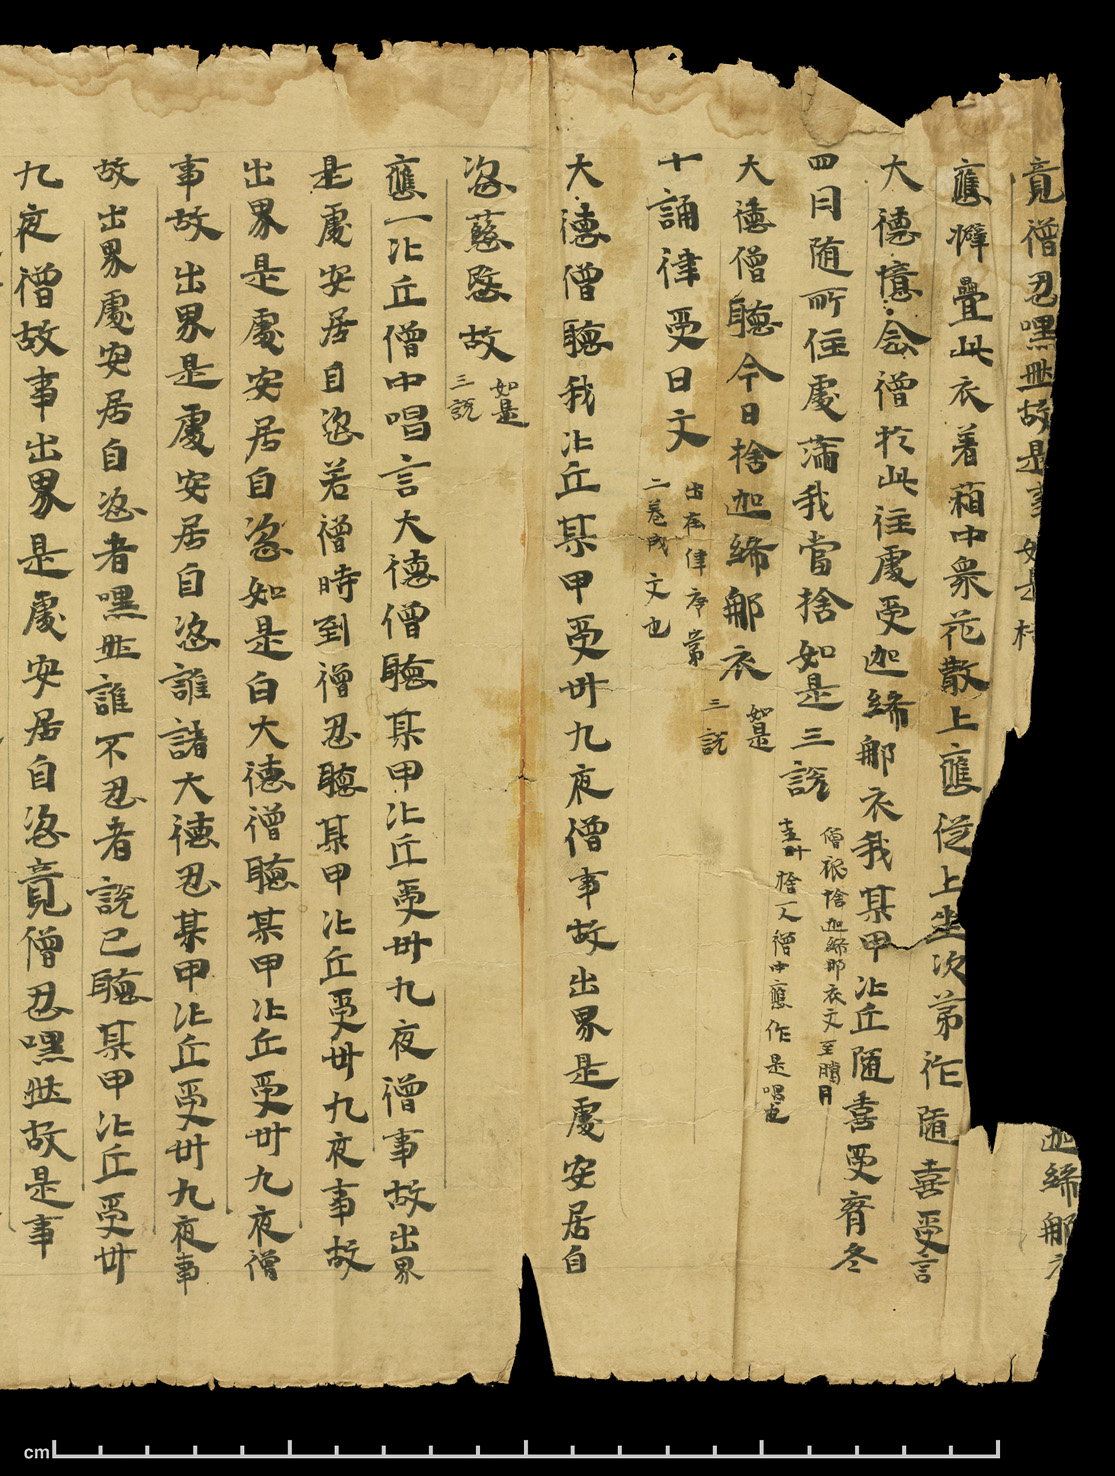 竟僧忍嘿然故是事如是持 迦絺那衣
應襞疊此衣著箱中衆花散上應從上坐次苐作随喜受言
大德憶念僧於此住處受迦絺那衣我某甲比丘随喜受齊冬
四月随所住處滿我當捨如是三說 僧祇捨迦絺那衣文至臈月
十五卅捨一人僧中應作是唱也
大德僧聽今日捨迦絺那衣 如是
三說
十誦律受日文 出在律序苐
二卷成文也
大德僧聽我比丘某甲受卅九夜僧事故出界是處安居自
恣慈愍故 如是
三說
應一比丘僧中唱言大德僧聽某甲比丘受卅九夜僧事故出界
是處安居自恣若僧時到僧忍聽某甲比丘受卅九夜事故
出界是處安居自恣如是白大德僧聽某甲比丘受卅九夜僧
事故出界是處安居自恣誰諸大德忍某甲比丘受卅九夜事
故出界處安居自恣者嘿然誰不忍者說已聽某甲比丘受卅
九夜僧故事出界是處安居自恣竟僧忍嘿然故是事